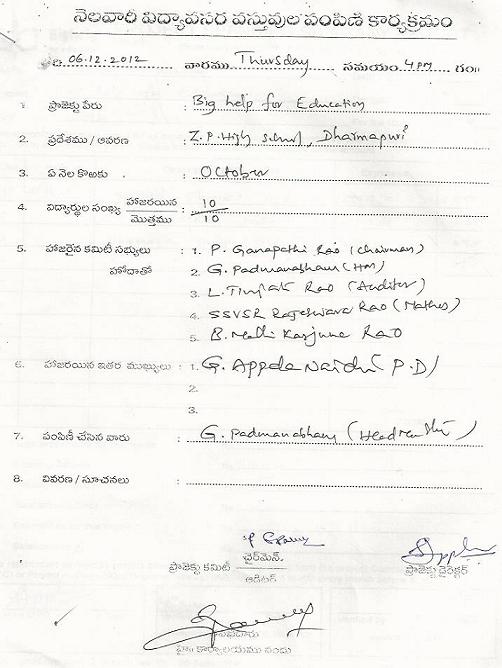 నెలవారీ విద్యాపసర వస్తువుల పంపిణి కార్యక్రమం
తేది 06.12.2012 వారము Thursday సమయం 4 PM గం॥
1. ప్రాజెక్టు పేరు : Big help for Education
2. ప్రదేశము / ఆవరణ : Z.P. High School, Dharmapuri
3. ఏ నెల కొఱకు : October
4. విద్యార్థుల సంఖ్య హాజరయిన / మొత్తము : 10 / 10
5. హాజరైన కమిటీ సభ్యులు : 1. P. Ganapathi Rao (Chairman)
హోదాతో 2. G. Padmanabham (HM)
3. L. Rao (Auditor)
4. SSVSR Rajeswara Rao (Maths)
5. B. Malli Karjuna Rao
6. హాజరయిన ఇతర ముఖ్యులు : 1. G. Appala Naidu (P.D)
2.
3.
7. పంపిణీ చేసిన వారు : G. Padmanabham (Headmaster)
8. వివరణ / సూచనలు :
ప్రాజెక్టు కమిటీ ఛైర్‌మెన్ ప్రాజెక్టు డైరెక్టర్
ఆడిటర్
హై॥ కార్యాలయము నందు